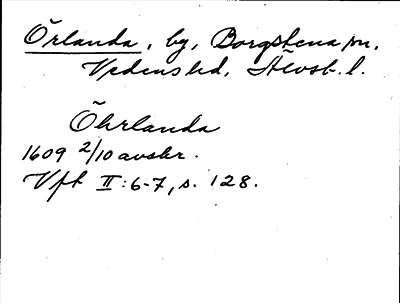 Örlanda, by, Borgstena sn,
Vedens hd, Älvsb. l.
Öhrlanda
1609 2/10 avskr.
Vft II:6-7, s. 128.